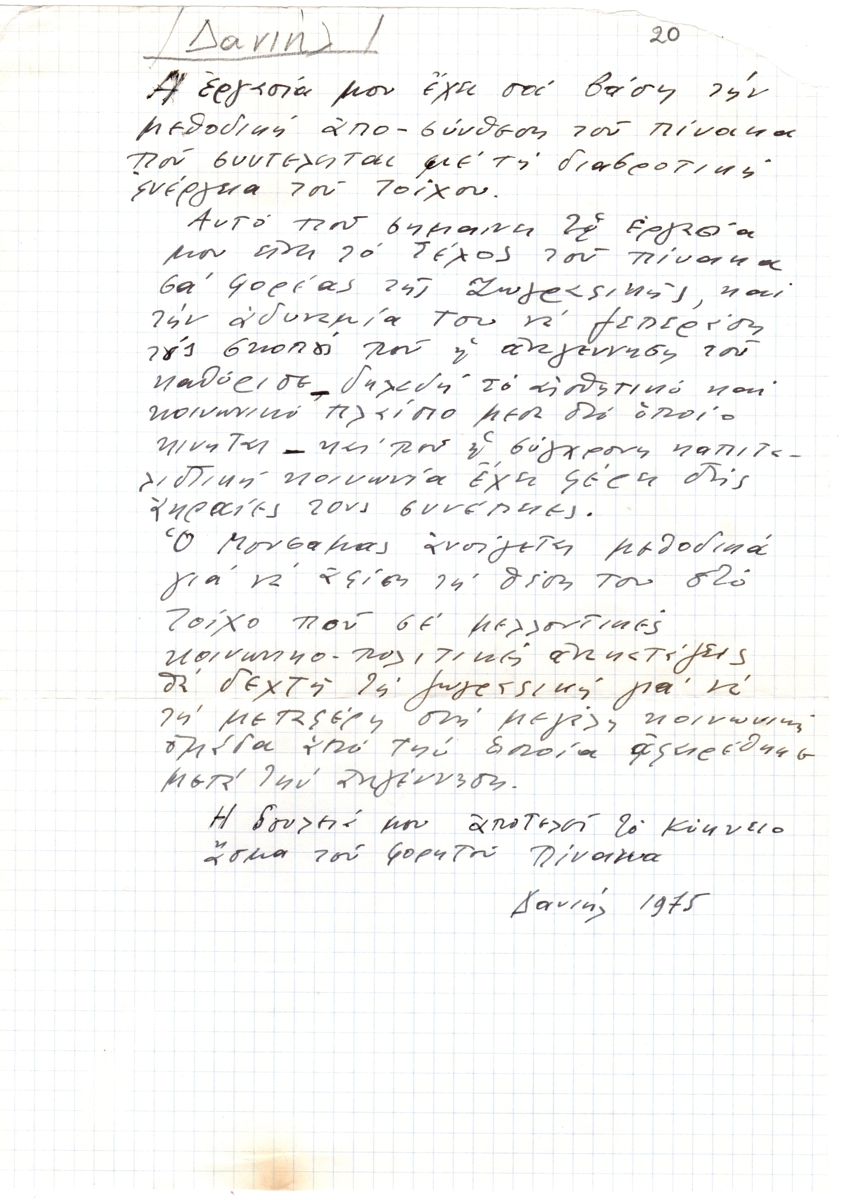 Δανιήλ
20
Ἡ ἐργασία μου ἔχει σά βάση τήν
μεθοδική ἀπο-σύνθεση τοῦ πίνακα
πού συντελεῖται μέ τή διαβρωτική
ἐνέργεια τοῦ τοίχου.
Αυτό πού σημαινει ἡ ἐργασία
μου εἶναι τό τέλος τοῦ πίνακα
σά φορέας τῆς ζωγραφικῆς, καί
τήν ἀδυναμία του νά ξεπεράση
τούς σκοπούς πού ἡ ἀναγέννηση τοῦ
καθόρισε _ δηλαδή τό αἰσθητικό καί
κοινωνικό πλαίσιο μεσα στό ὁποίο
κινηται _ καί πού ἡ σύγχρονη καπιτα-
λιστική κοινωνία ἔχει φέρει στίς
ἀκραίες τους συνέπειες.
Ὁ Μουσαμας ἀνοίγεται μεθοδικά
γιά νά ἀφίση τή θέση του στό
τοίχο πού σέ μελλοντικές
κοινωνικο-πολιτικές ἀνακατάξεις
θά δεχτῆ τή ζωγραφική γιά νά
τή μεταφέρη στή μεγάλη κοινωνική
ὁμάδα ἀπό τήν ὁποία ἀφαιρέθηκε
μετά τήν ἀναγέννηση.
Η δουλειά μου ἀποτελεί τό κύκνειο
ἄσμα τοῦ φορητοῦ Πίνακα
Δανιήλ 1975